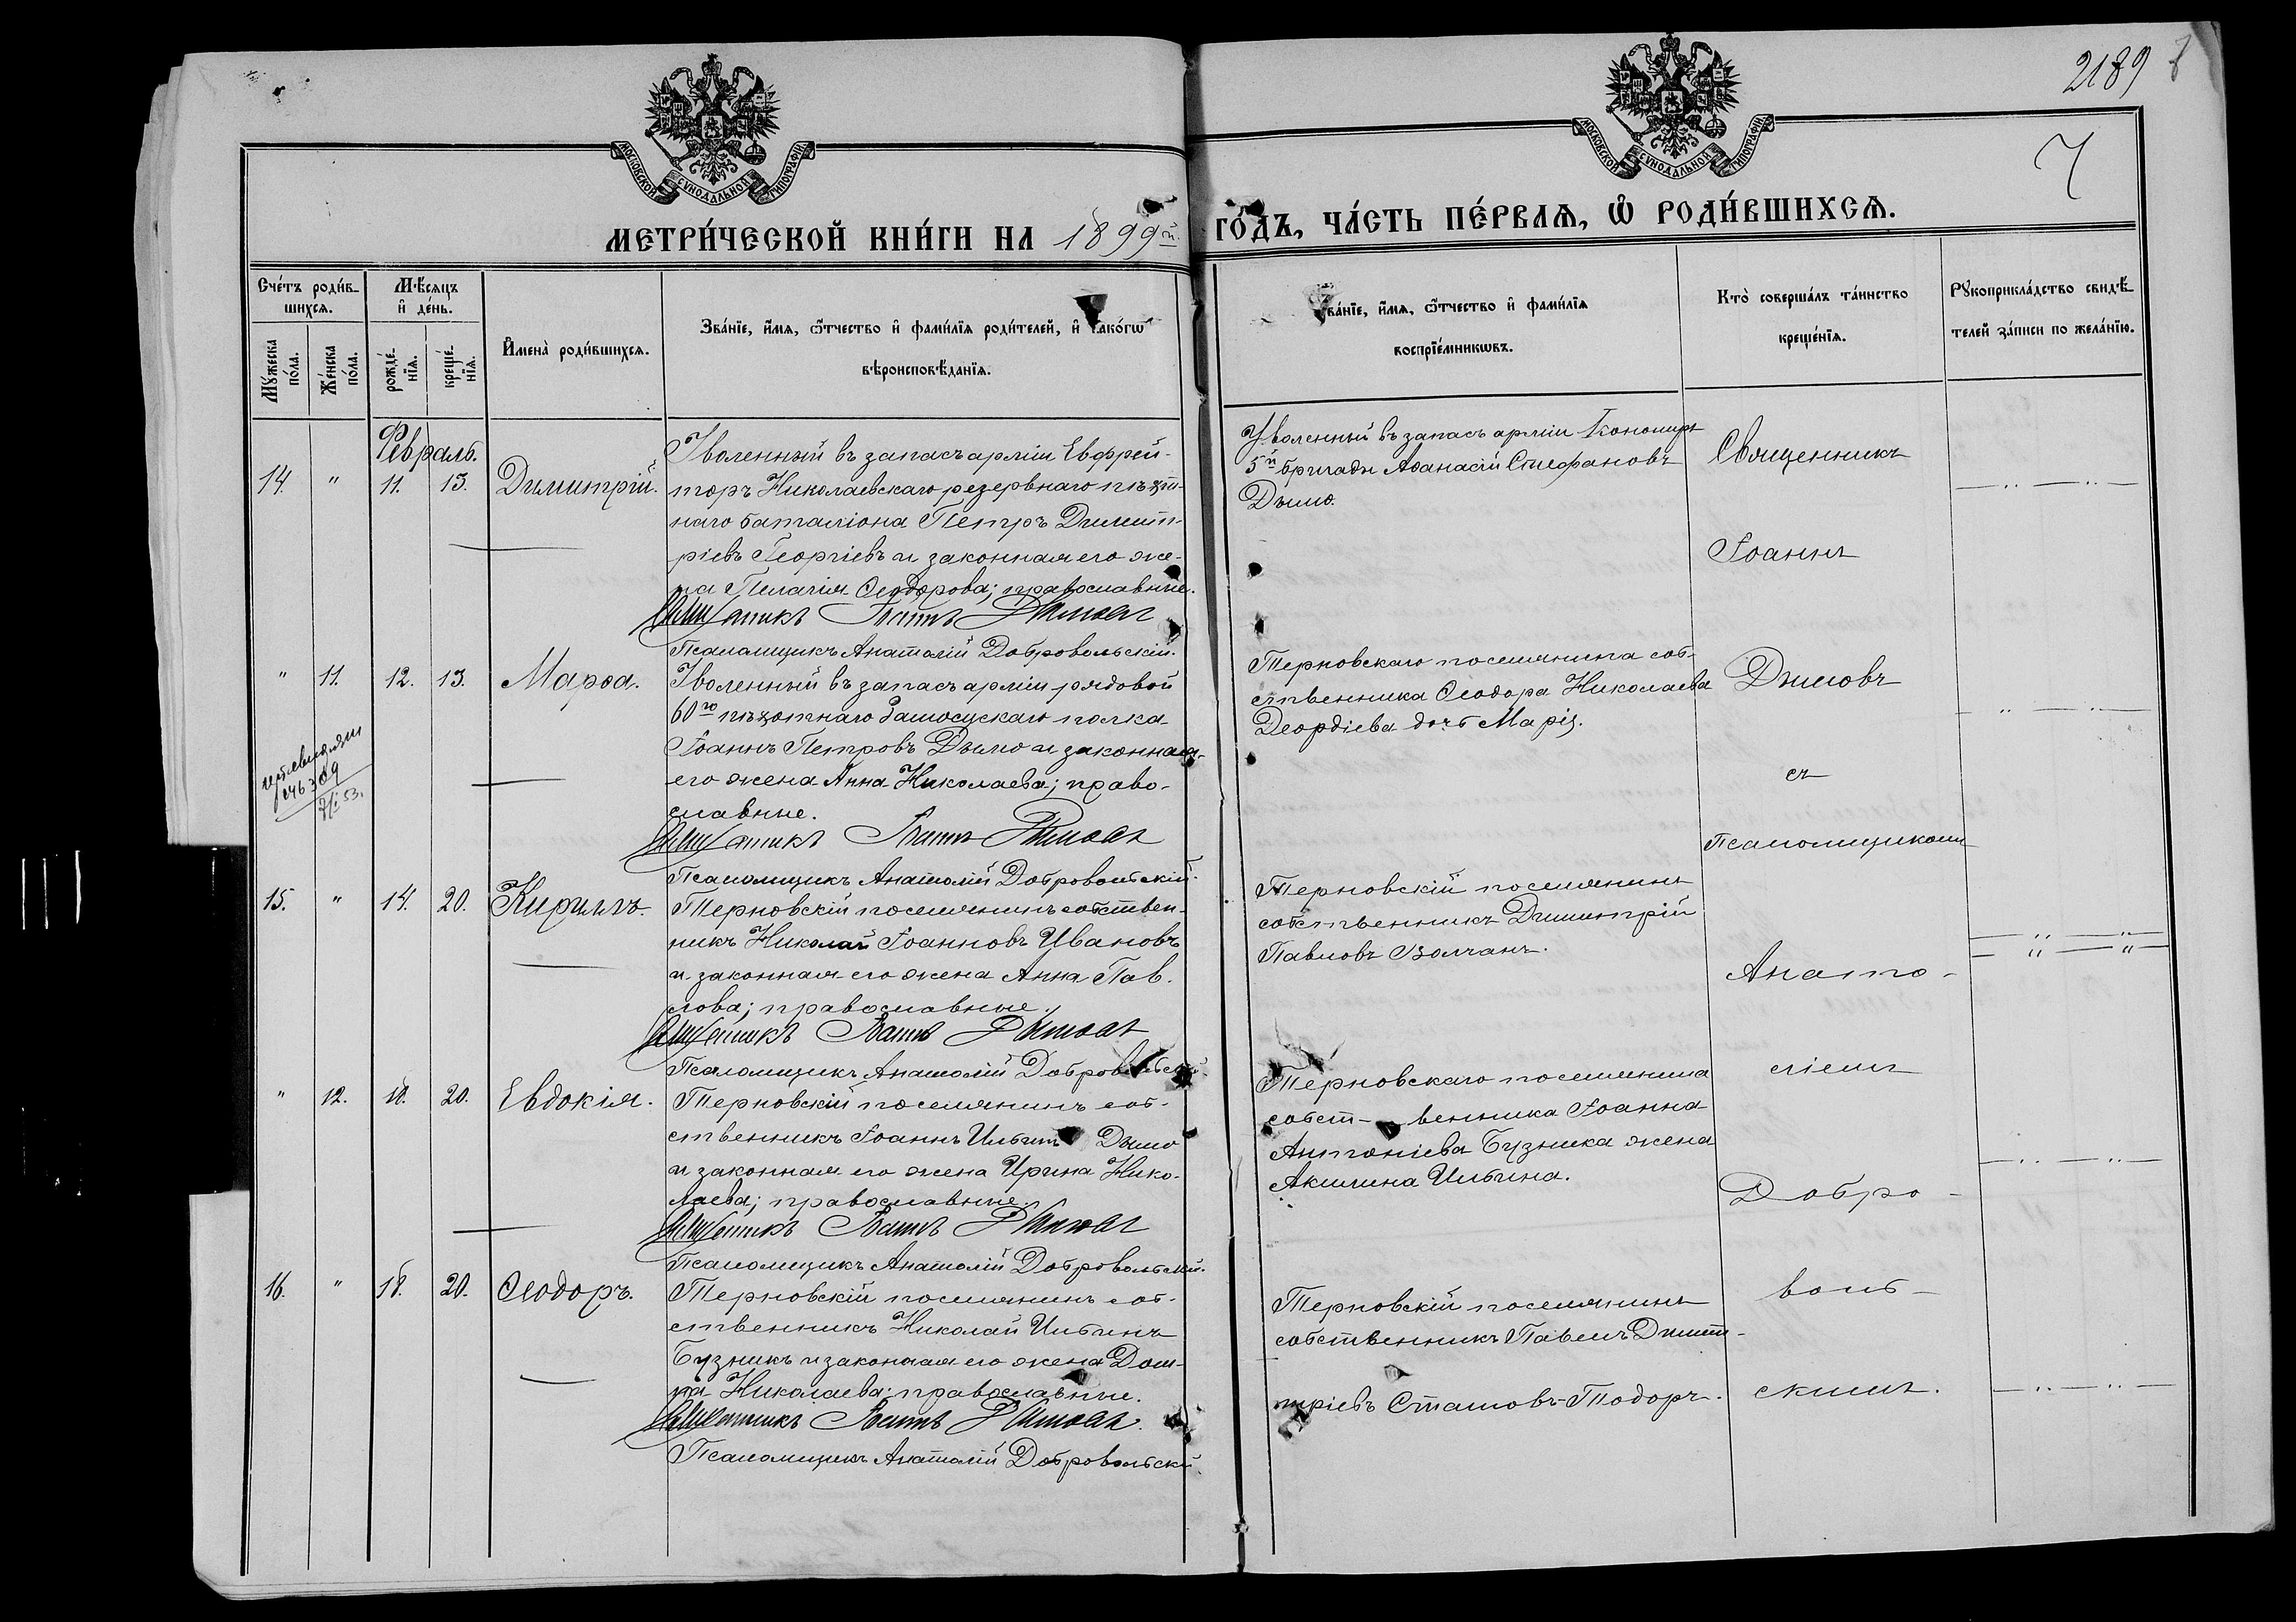 2189
7
МОСКОВСКОЙ СѴНОДАЛЬНОЙ ТИПОГРАФІИ
МОСКОВСКОЙ СѴНОДАЛЬНОЙ ТИПОГРАФІИ
МЕТРИ́ЧЕСКОЙ КНИ́ГИ НА 1899й ГО́ДЪ, ЧА́СТЬ ПЕ́РВАѦ, Ѡ РОДИ́ВШИХСѦ.
Сче́тъ роди́в-
шихсѧ.
Мꙋжеска по́ла.
Же́нска по́ла.
Мѣ́сѧцъ
и҆ де́нь.
рожде́-
нїѧ.
креще́-
нїѧ.
И҆мена̀ роди́вшихсѧ.
Зва́нїе, и҆́мѧ, ѻ҆́тчество и҆ фами́лїѧ роди́телей, и҆ како́гѡ
вѣроисповѣ́данїѧ.
Зва́нїе, и҆́мѧ, ѻ҆́тчество и҆ фами́лїѧ
воспрїе́мникѡвъ.
Кто̀ соверша́лъ та́инство
креще́нїѧ.
Рꙋкоприкла́дство свидѣ́-
телей за́писи по жела́нїю.
Февраль.
14. " 11. 13. Димитрій.
Уволенный въ запасъ арміи Ефрей-
торъ Николаевскаго резервнаго пѣхот-
наго баталіона Петръ Димит-
ріевъ Георгіевъ и законная его же-
на Пелагія Ѳеодорова; православные.
Священникъ Іоаннъ Дымовъ
Псаломщикъ Анатолій Добровольскій.
Уволенный въ запасъ арміи Конониръ
5й бригады Аѳанасій Стефановъ
Дымо.
" 11. 12. 13. Марѳа.
Уволенный въ запасъ арміи рядовой
60го пѣхотнаго Замосцскаго полка
Іоаннъ Петровъ Дымо и законная
его жена Анна Николаева; право-
славные.
Священникъ Іоаннъ Дымовъ
Псаломщикъ Анатолій Добровольскій.
Терновскаго поселянина соб-
ственника Ѳеодора Николаева
Деордіева дочь Марія.
15. " 14. 20. Кириллъ.
Терновскій поселянинъ собствен-
никъ Николай Іоанновъ Ивановъ
и законная его жена Анна Пав-
лова; православные.
Священникъ Іоаннъ Дымовъ
Псаломщикъ Анатолій Добровольскій
Терновскій поселянинъ
собственникъ Димитрій
Павловъ Волчанъ.
" 12. 18. 20. Евдокія.
Терновскій поселянинъ соб-
ственникъ Іоаннъ Ильинъ Дымо
и законная его жена Ирина Нико-
лаева; православные.
Священникъ Іоаннъ Дымовъ
Псаломщикъ Анатолій Добровольскій.
Терновскаго поселянина
собст- венника Іоанна
Антоніева Бузника жена
Акилина Ильина.
16. " 18. 20. Ѳеодоръ.
Терновскій поселянинъ соб-
ственникъ Николай Ильинъ
Бузникъ и законная его жена Дом-
на Николаева; православные.
Священникъ Іоаннъ Дымовъ.
Псаломщикъ Анатолій Добровольскій.
Терновскій поселянинъ
собственникъ Павелъ Димит-
тріевъ Статовъ-Тодоръ.
Священникъ
Іоаннъ
Дымовъ
съ
Псаломщикомъ
Анато-
ліемъ
Добро-
воль-
скимъ.